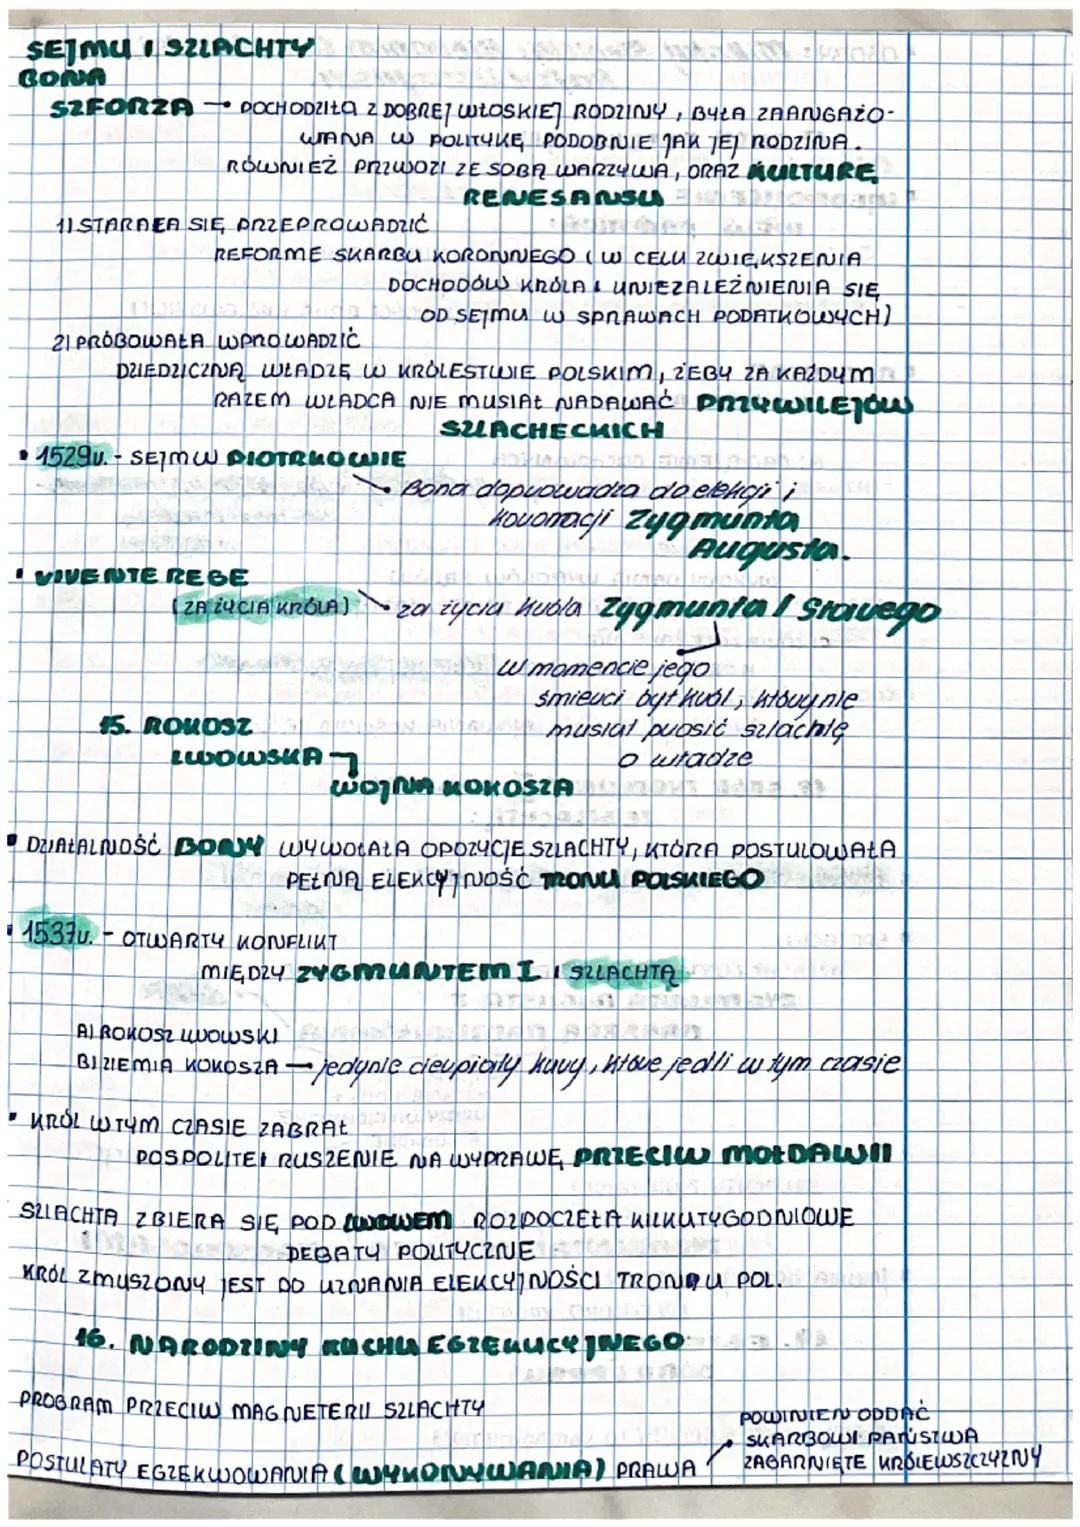 SEJMU I SZLACHTY
BONA
SZFORZA → POCHODZIŁA Z DOBREJ WŁOSKIEJ RODZINY, BYŁA ZAANGAŻO-
WANA W POLITYKĘ PODOBNIE JAK JEJ RODZINA.
RÓWNIEŻ PRZWOZI ZE SOBĄ WARZYWA, ORAZ KULTURĘ
RENESANSU
1) STARAŁA SIĘ PRZEPROWADZIĆ
REFORMĘ SKARBU KORONNEGO (W CELU ZWIĘKSZENIA
DOCHODÓW KRÓLA I UNIEZALEŻNIENIA SIĘ
OD SEJMU W SPRAWACH PODATKOWYCH)
2) PRÓBOWAŁA WPROWADZIĆ
DZIEDZICZNĄ WŁADZĘ W KRÓLESTWIE POLSKIM, ŻEBY ZA KAŻDYM
RAZEM WŁADCA NIE MUSIAŁ NADAWAĆ PRZYWILEJÓW
SZLACHECKICH
• 1529r. - SEJM W PIOTRKOWIE
Bona doprowadza do elekcji i
koronacji Zygmunta
Augusta.
• VIVENTE REGE
(ZA ŻYCIA KRÓLA) → za życia króla Zygmunta I Starego
w momencie jego
śmierci był król, który nie
musiał prosić szlachtę
o władze
15. ROKOSZ
LWOWSKA
WOJNA KOKOSZA
• DZIAŁALNOŚĆ BONY WYWOŁAŁA OPOZYCJE SZLACHTY, KTÓRA POSTULOWAŁA
PEŁNĄ ELEKCYJNOŚĆ TRONU POLSKIEGO
• 1537r. - OTWARTY KONFLIKT
MIĘDZY ZYGMUNTEM I I SZLACHTĄ
A) ROKOSZ LWOWSKI
B) ZIEMIA KOKOSZA → jedynie cierpiały kury, które jedli w tym czasie
• KRÓL W TYM CZASIE ZABRAŁ
POSPOLITE RUSZENIE NA WYPRAWĘ PRZECIW MOŁDAWII
SZLACHTA ZBIERA SIĘ POD LWOWEM ROZPOCZĘŁA KILKUTYGODNIOWE
DEBATY POLITYCZNE
KRÓL ZMUSZONY JEST DO UZNANIA ELEKCYJNOŚCI TRONU POL.
16. NARODZINY RUCHU EGZEKUCYJNEGO
PROGRAM PRZECIW MAGNETERII SZLACHTY
POWINIEN ODDAĆ
SKARBOWI PAŃSTWA
POSTULATY EGZEKWOWANIA (WYKONYWANIA) PRAWA → ZAGARNIĘTE KRÓLEWSZCZYZNY